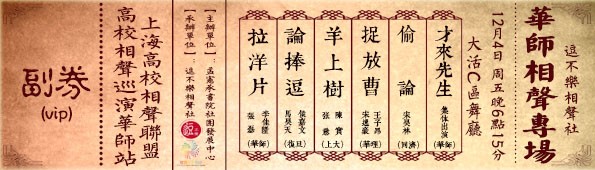 逗不樂相聲社
華师相聲專場
12月4日 周五晚6點15分
大活C區舞廳
才來先生
集体出演
(華師)
偷論
宋昊林
(同濟)
捉放曹
(華理)
羊上樹
陳寶
張慈
(上大)
論捧逗
侯嘉文
馬昊天
(復旦)
拉洋片
李佳陸
張磊
(華師)
【主辦單位】:孟憲承書院社團發展中心
【承辦單位】:逗不樂相聲社
上海高校相聲聯盟
高校相聲巡演華師站
副券
(vip)